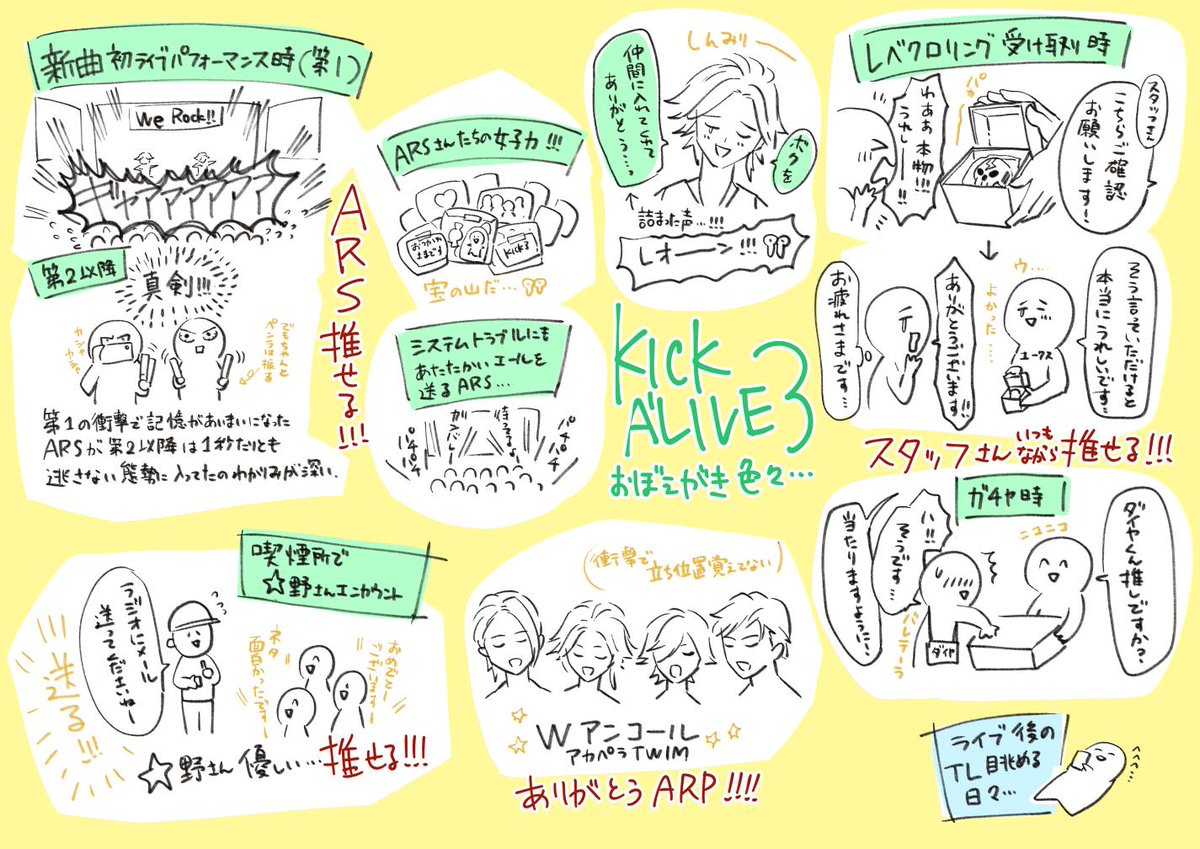 新曲初ライブパフォーマンス時(第1)
We Rock!!
ギャアアアアアアア
第2以降
真剣!!!
カシャカシャ
でもちゃんと
ペンラは振る
第1の衝撃で記憶があいまいになった
ARSが第2以降は1秒だりとも
逃さない態勢に入ってたのわかりみが深い.
ARS推せる!!!
ARSさんたちの女子力!!!
おつかれ
さまです
KICK3
宝の山だ…
システムトラブルにも
あたたかいエールを
送るARS…
待ってるよー
がんばれー
パチパチ
パチパチ
しんみりー
ボクを
仲間に入れてくれて
ありがとう…
詰まった声…!!!
レオーーン!!!
KICK
A'LIVE3
おぼえがき色々…
レベクロリング受け取り時
スタッフさん
こちらご確認
お願いします~
パカ
わぁぁ本物!!!
うれしー!!
そう言っていただけると
本当にうれしいです…
ウ…
よかった…
ユークス
ありがとうございます!!
お疲れさまです…
スタッフさんいつも
ながら推せる!!!
ガチャ時
ダイヤくん推しですか?
ニコニコ
い!!
そうです…
バレテーラ
ダイヤ
当たりますように…
喫煙所で
☆野さんエンカウント
ラジオにメール
送ってくださいねー
送る!!!
おめでとー
ございますー
ネタ
面白かったですー
☆野さん優しい…推せる!!!
衝撃で
立ち位置覚えてない
Wアンコール
アカペラTWIM
ありがとうARP!!!!
ライブ後の
TL眺める
日々…